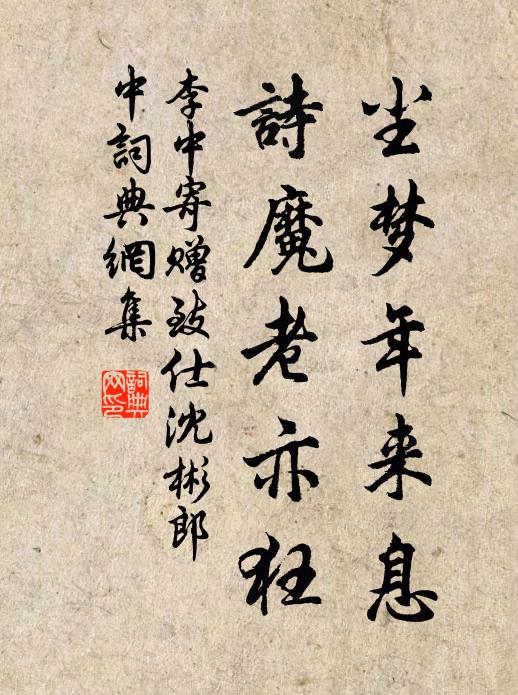 尘梦年来息
詩魔老亦狂
李中寄赠致仕沈彬郎
中詞典網集
詞典
网印